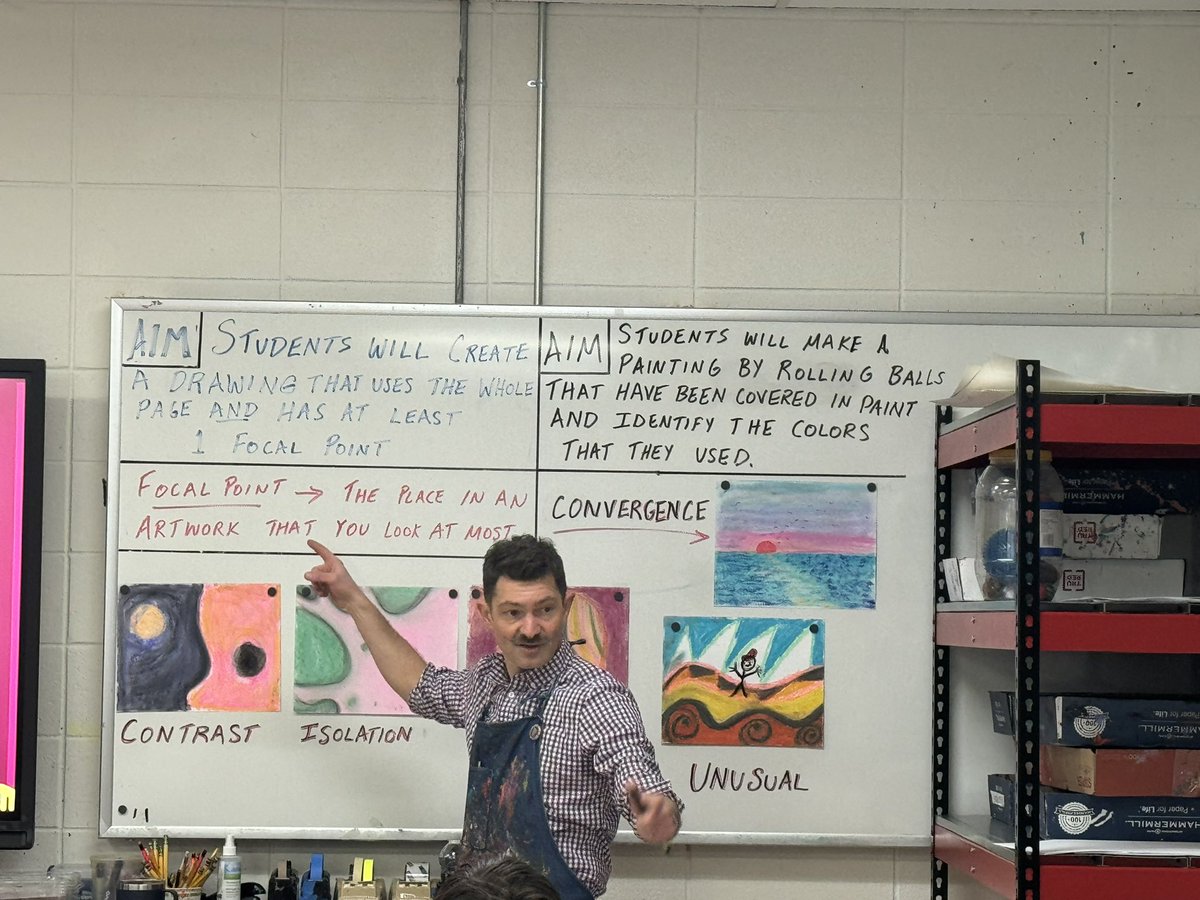 AIM STUDENTS WILL CREATE
A DRAWING THAT USES THE WHOLE
PAGE AND HAS AT LEAST
1 FOCAL POINT
AIM STUDENTS WILL MAKE A
PAINTING BY ROLLING BALLS
THAT HAVE BEEN COVERED IN PAINT
AND IDENTIFY THE COLORS
THAT THEY USED.
FOCAL POINT → THE PLACE IN AN
ARTWORK THAT YOU LOOK AT MOST
CONVERGENCE
CONTRAST
ISOLATION
UNUSUAL
HAMMERMILL
TRU RED
RED
Paper for Life.
100
HAMMERMILL
Paper for Life.
100
HAMMERMILL